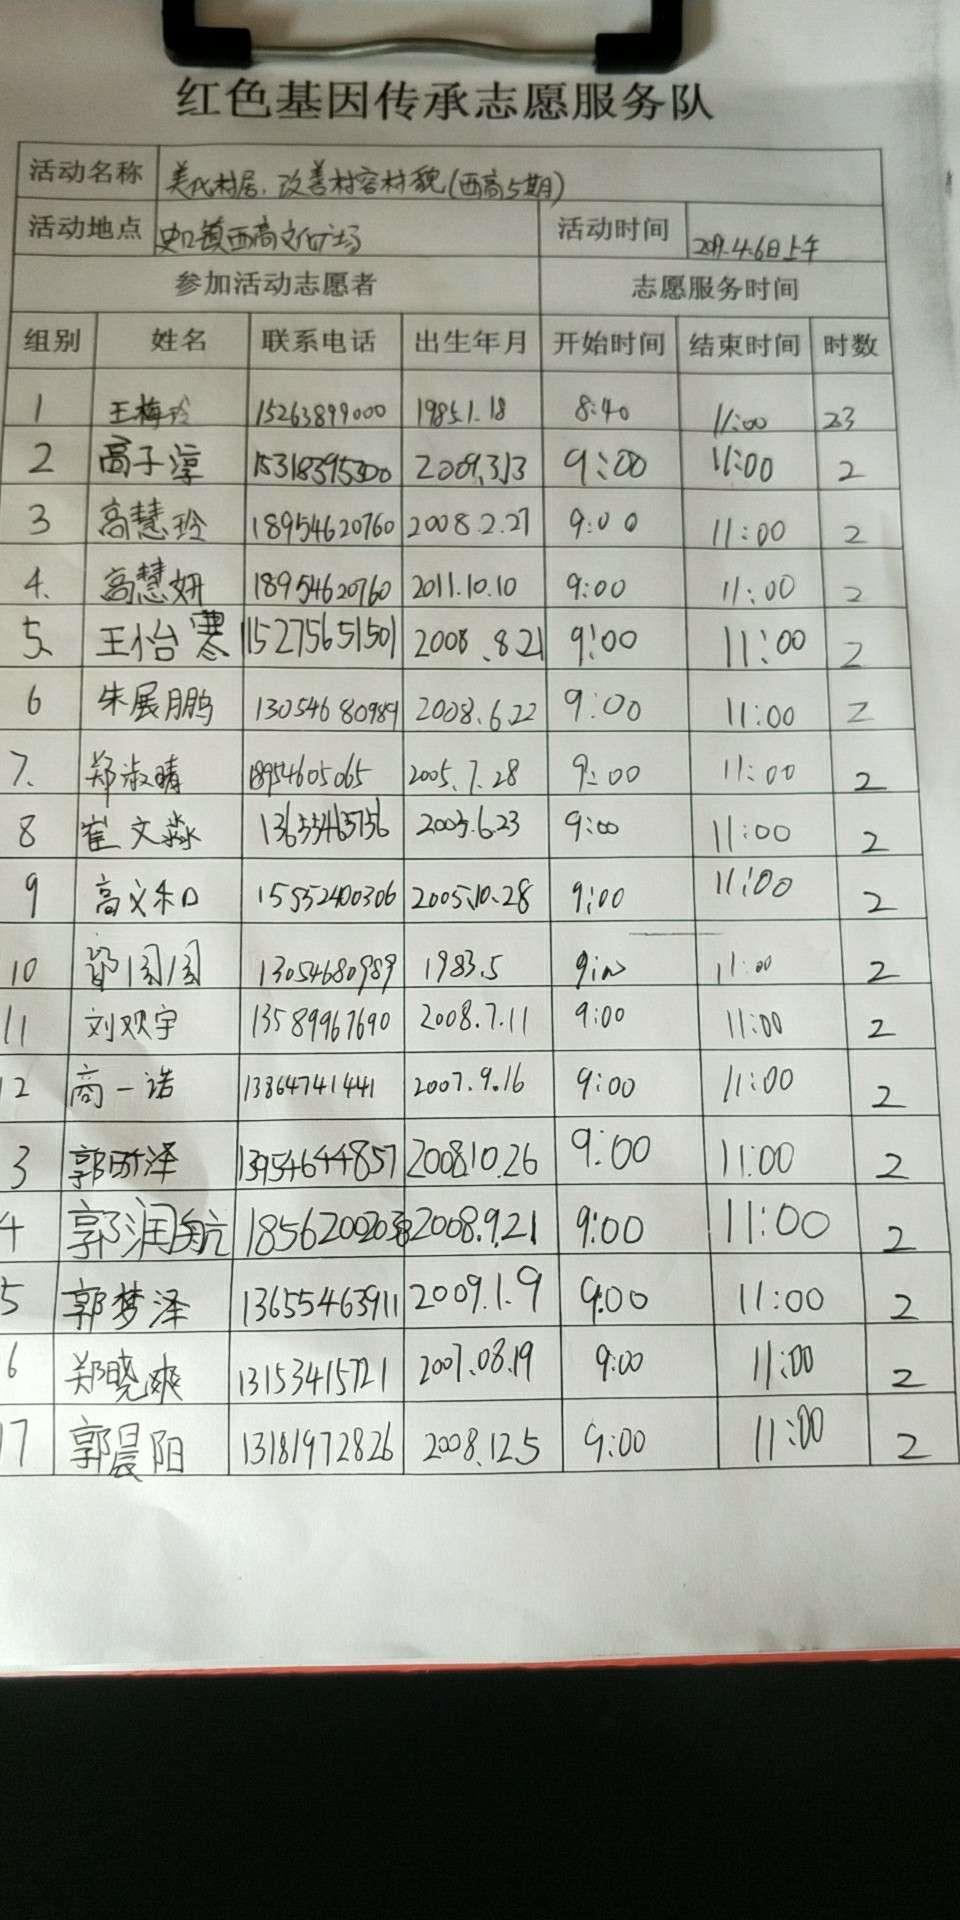 红色基因传承志愿服务队
活动名称 美化村居、改善村容村貌(西商5期)
活动地点 史口镇西商文化广场 活动时间 2019.4.6日上午
参加活动志愿者 志愿服务时间
组别 姓名 联系电话 出生年月 开始时间 结束时间 时数
1 王梅玲 15263899000 1985.1.18 8:40 11:00 2.3
2 商子淳 15318395300 2009.3.13 9:00 11:00 2
3 高慧玲 18954620760 2008.2.27 9:00 11:00 2
4. 高慧妍 18954620760 2011.10.10 9:00 11:00 2
5、 王怡寒 15275651501 2008.8.21 9:00 11:00 2
6 朱展鹏 13054680989 2008.6.22 9:00 11:00 2
7. 郑淑晴 18954605065 2005.7.28 9:00 11:00 2
8 崔文淼 13655465756 2005.6.23 9:00 11:00 2
9 高文和 15552400306 2005.10.28 9:00 11:00 2
10 13054680989 1983.5 9:00 11:00 2
11 刘欢宇 13589967690 2008.7.11 9:00 11:00 2
12 商一诺 13864741441 2007.9.16 9:00 11:00 2
3 郭昕泽 13954644857 2008.10.26 9:00 11:00 2
4 郭润航 2008.9.21 9:00 11:00 2
5 郭梦泽 13655463911 2009.1.9 9:00 11:00 2
6 郑晓爽 13153415721 2007.08.19 9:00 11:00 2
17 郭晨阳 13181972826 2008.12.5 9:00 11:00 2